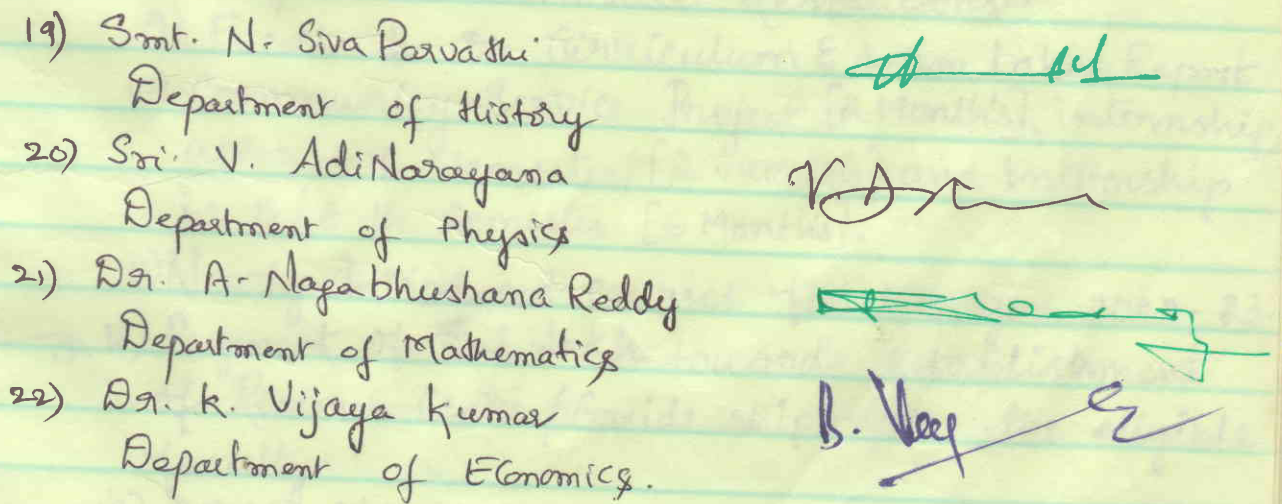 19) Smt. N. Siva Parvathi
Department of History
20) Sri. V. AdiNarayana
Department of Physics
21) Dr. A. Nagabhushana Reddy
Department of Mathematics
22) Dr. K. Vijaya Kumar
B.
Department of Economics.